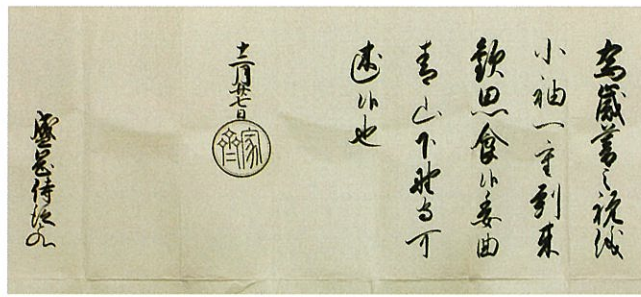 為歳暮之祝儀
小袖一重到来
歓思食候委曲
青山下野守可
述候也
十二月廿七日
家齊
盛岡侍従殿